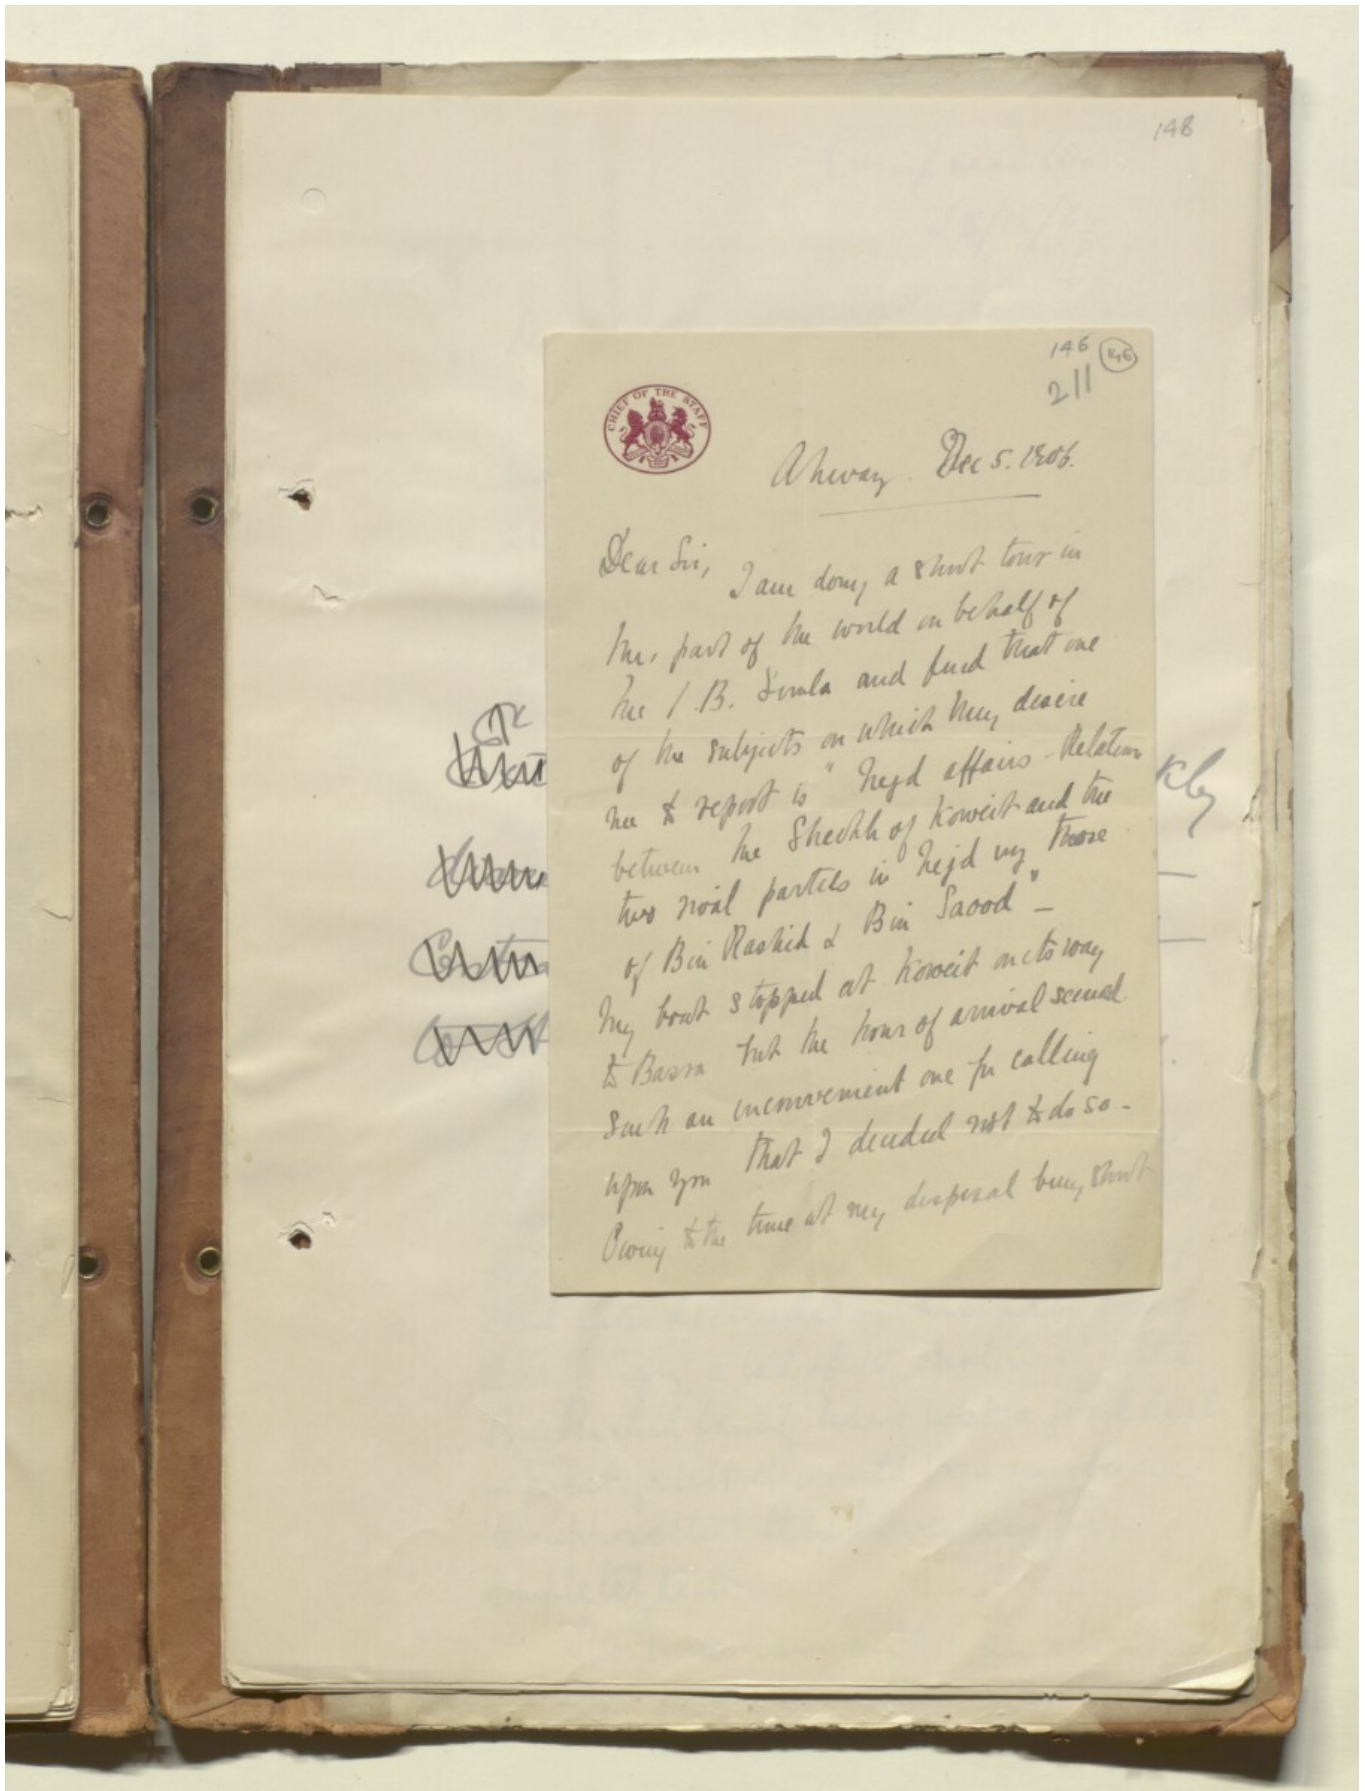 148
146
146
211
CHIEF OF THE STAFF
Ahwaz. Dec 5. 1906.
Dear Sir,
I am doing a short tour in
this part of the world on behalf of
the I.B. Simla and find that one
of the subjects on which they desire
me to report is "Nejd affairs - Relations
between the Sheikh of Koweit and the
two rival parties in Nejd viz those
of Bin Rashid & Bin Saood" -
My boat stopped at Koweit on its way
to Basra but the hour of arrival seemed
such an inconvenient one for calling
upon you that I decided not to do so -
Owing to the time at my disposal being short